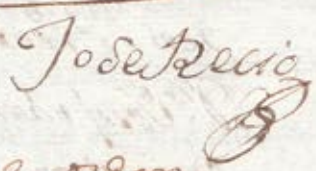 Jose Recio